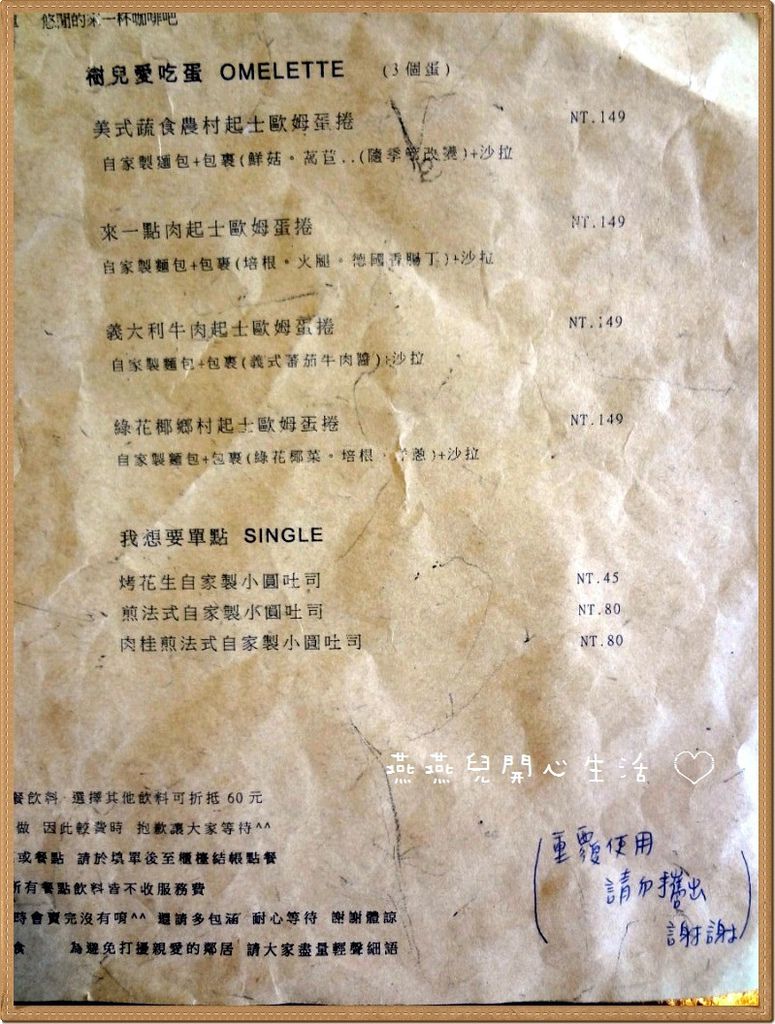 悠閒的第一杯咖啡吧
樹兒愛吃蛋 OMELETTE (3個蛋)
美式蔬食農村起士歐姆蛋捲 NT.149
自家製麵包+包裹(鮮菇。萵苣..(隨季節改變)+沙拉
來一點肉起士歐姆蛋捲 NT.149
自家製麵包+包裹(培根。火腿。德國香腸丁)+沙拉
義大利牛肉起士歐姆蛋捲 NT.149
自家製麵包+包裹(義式蕃茄牛肉醬)+沙拉
綠花椰鄉村起士歐姆蛋捲 NT.149
自家製麵包+包裹(綠花椰菜。培根。洋蔥)+沙拉
我想要單點 SINGLE
烤花生自家製小圓吐司 NT.45
煎法式自家製小圓吐司 NT.80
肉桂煎法式自家製小圓吐司 NT.80
燕燕兒開心生活 ♡
餐飲料 選擇其他飲料可折抵 60 元
做 因此較費時 抱歉讓大家等待^^
或餐點 請於填單後至櫃檯結帳點餐
所有餐點飲料皆不收服務費
時會賣完沒有唷^^ 還請多包涵 耐心等待 謝謝體諒
食 為避免打擾親愛的鄰居 請大家盡量輕聲細語
(重覆使用
請勿攜出
謝謝)